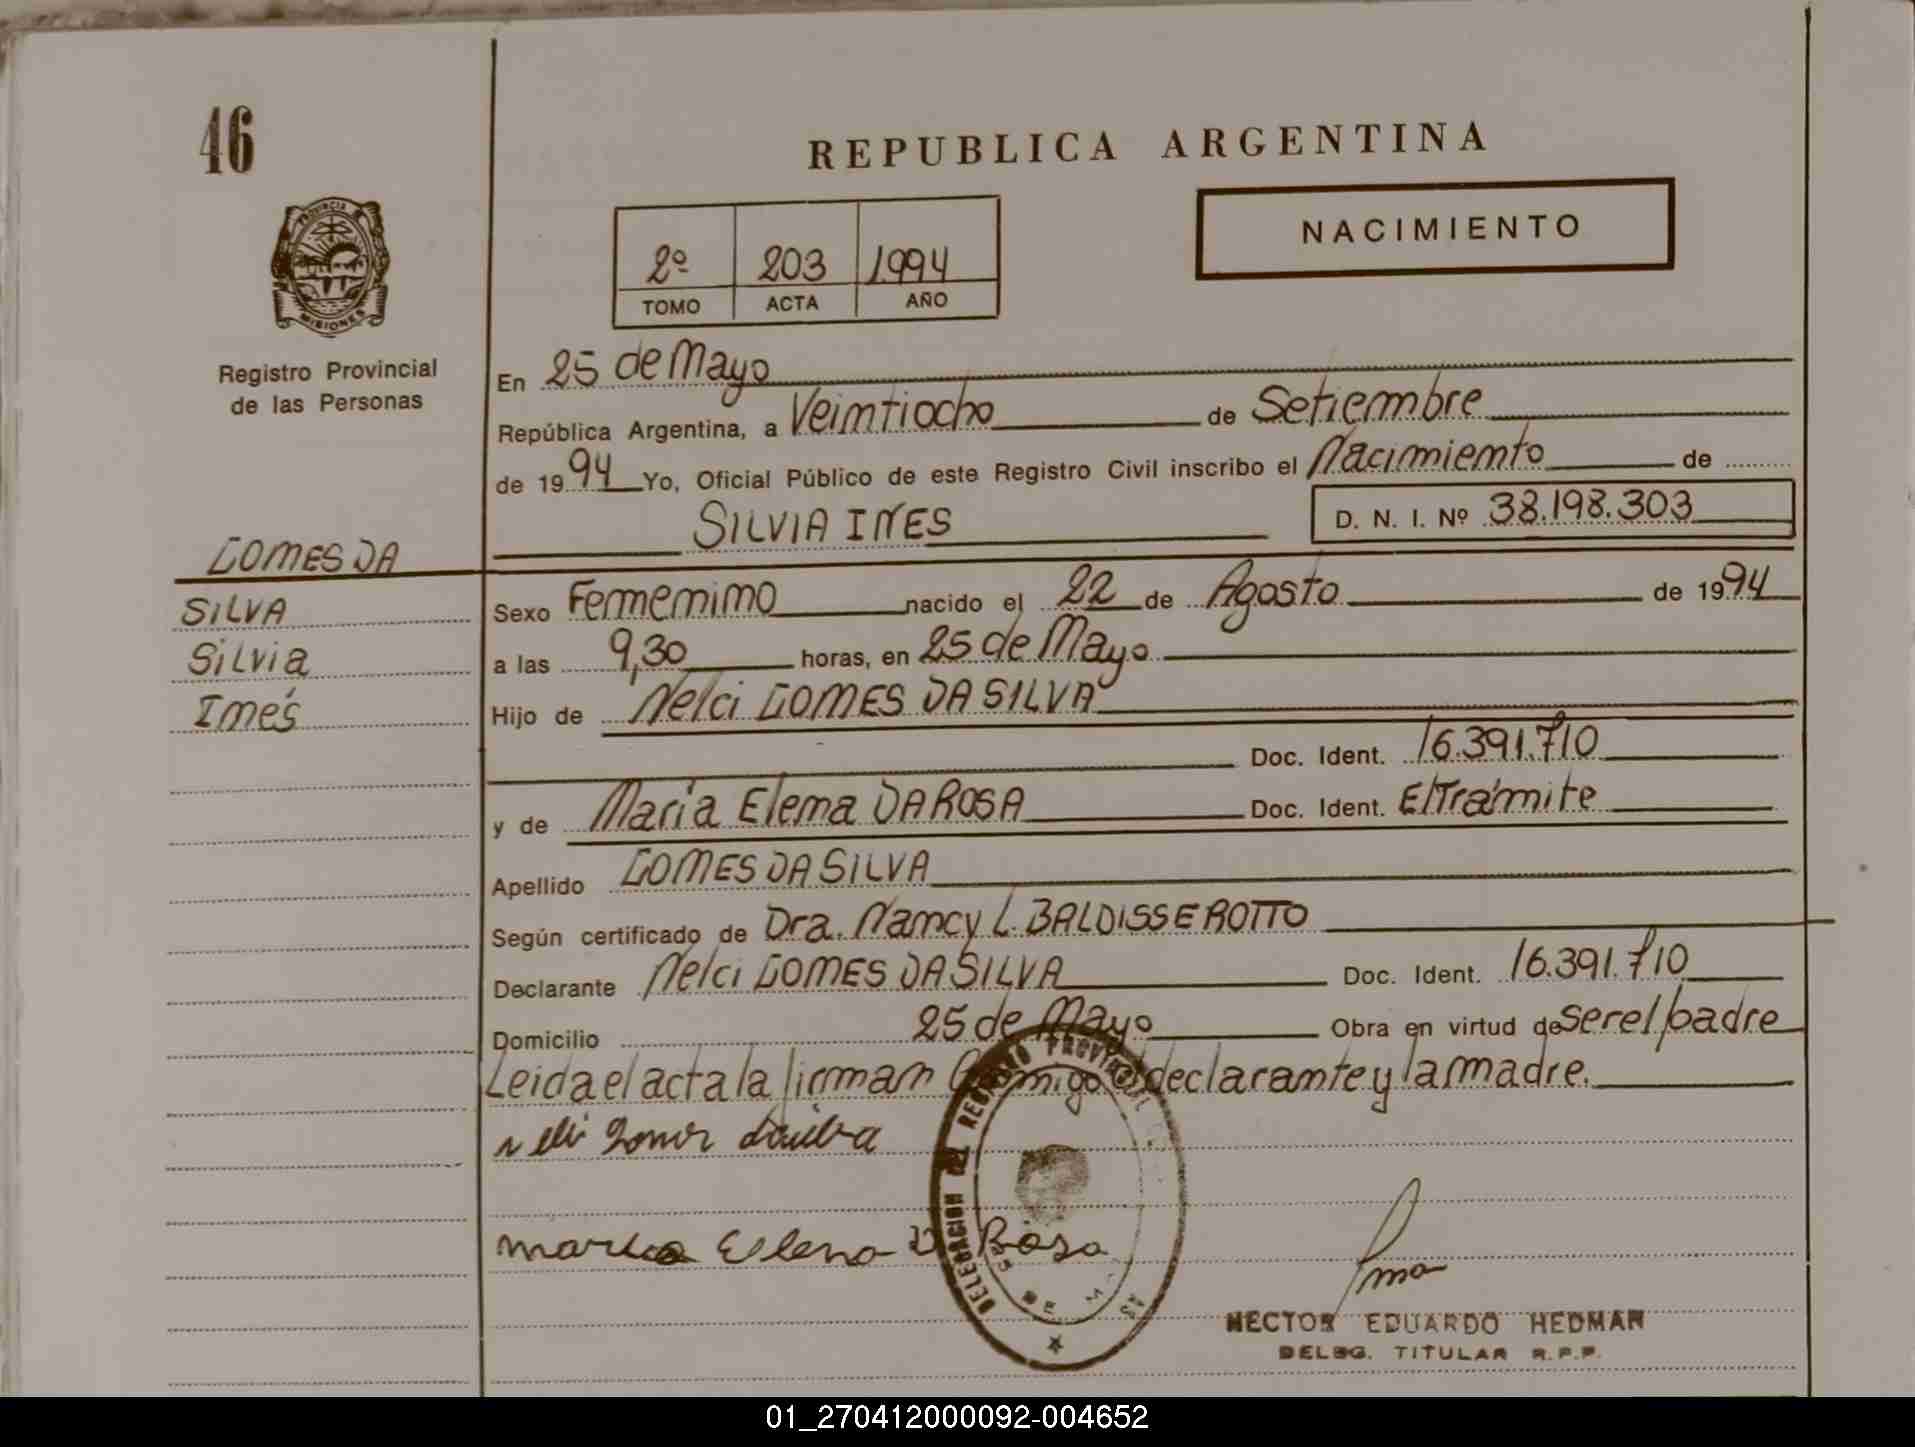 46
REPUBLICA ARGENTINA
NACIMIENTO
2º 203 1994
TOMO ACTA AÑO
PROVINCIA DE
MISIONES
Registro Provincial
de las Personas
En 25 de Mayo
República Argentina, a Veintiocho de Setiembre
de 1994 Yo, Oficial Público de este Registro Civil inscribo el Nacimiento de
SILVIA INES
D. N. I. Nº 38.198.303
GOMES DA
SILVA
Silvia
Inés
Sexo Femenino nacido el 22 de Agosto de 1994
a las 9,30 horas, en 25 de Mayo
Hijo de Nelci GOMES DA SILVA
Doc. Ident. 16.391.710
y de María Elena DA ROSA Doc. Ident. E/Trámite
Apellido GOMES DA SILVA
Según certificado de Dra. Nancy L. BALDISSEROTTO
Declarante Nelci GOMES DA SILVA Doc. Ident. 16.391.710
Domicilio 25 de Mayo Obra en virtud de ser el padre
Leida el acta la firman Conmigo el declarante y la madre.
DELEGACION DEL REGISTRO PROVINCIAL
Maria Elena D Rosa
HECTOR EDUARDO HEDMAN
DELEG. TITULAR R.P.P.
01_270412000092-004652